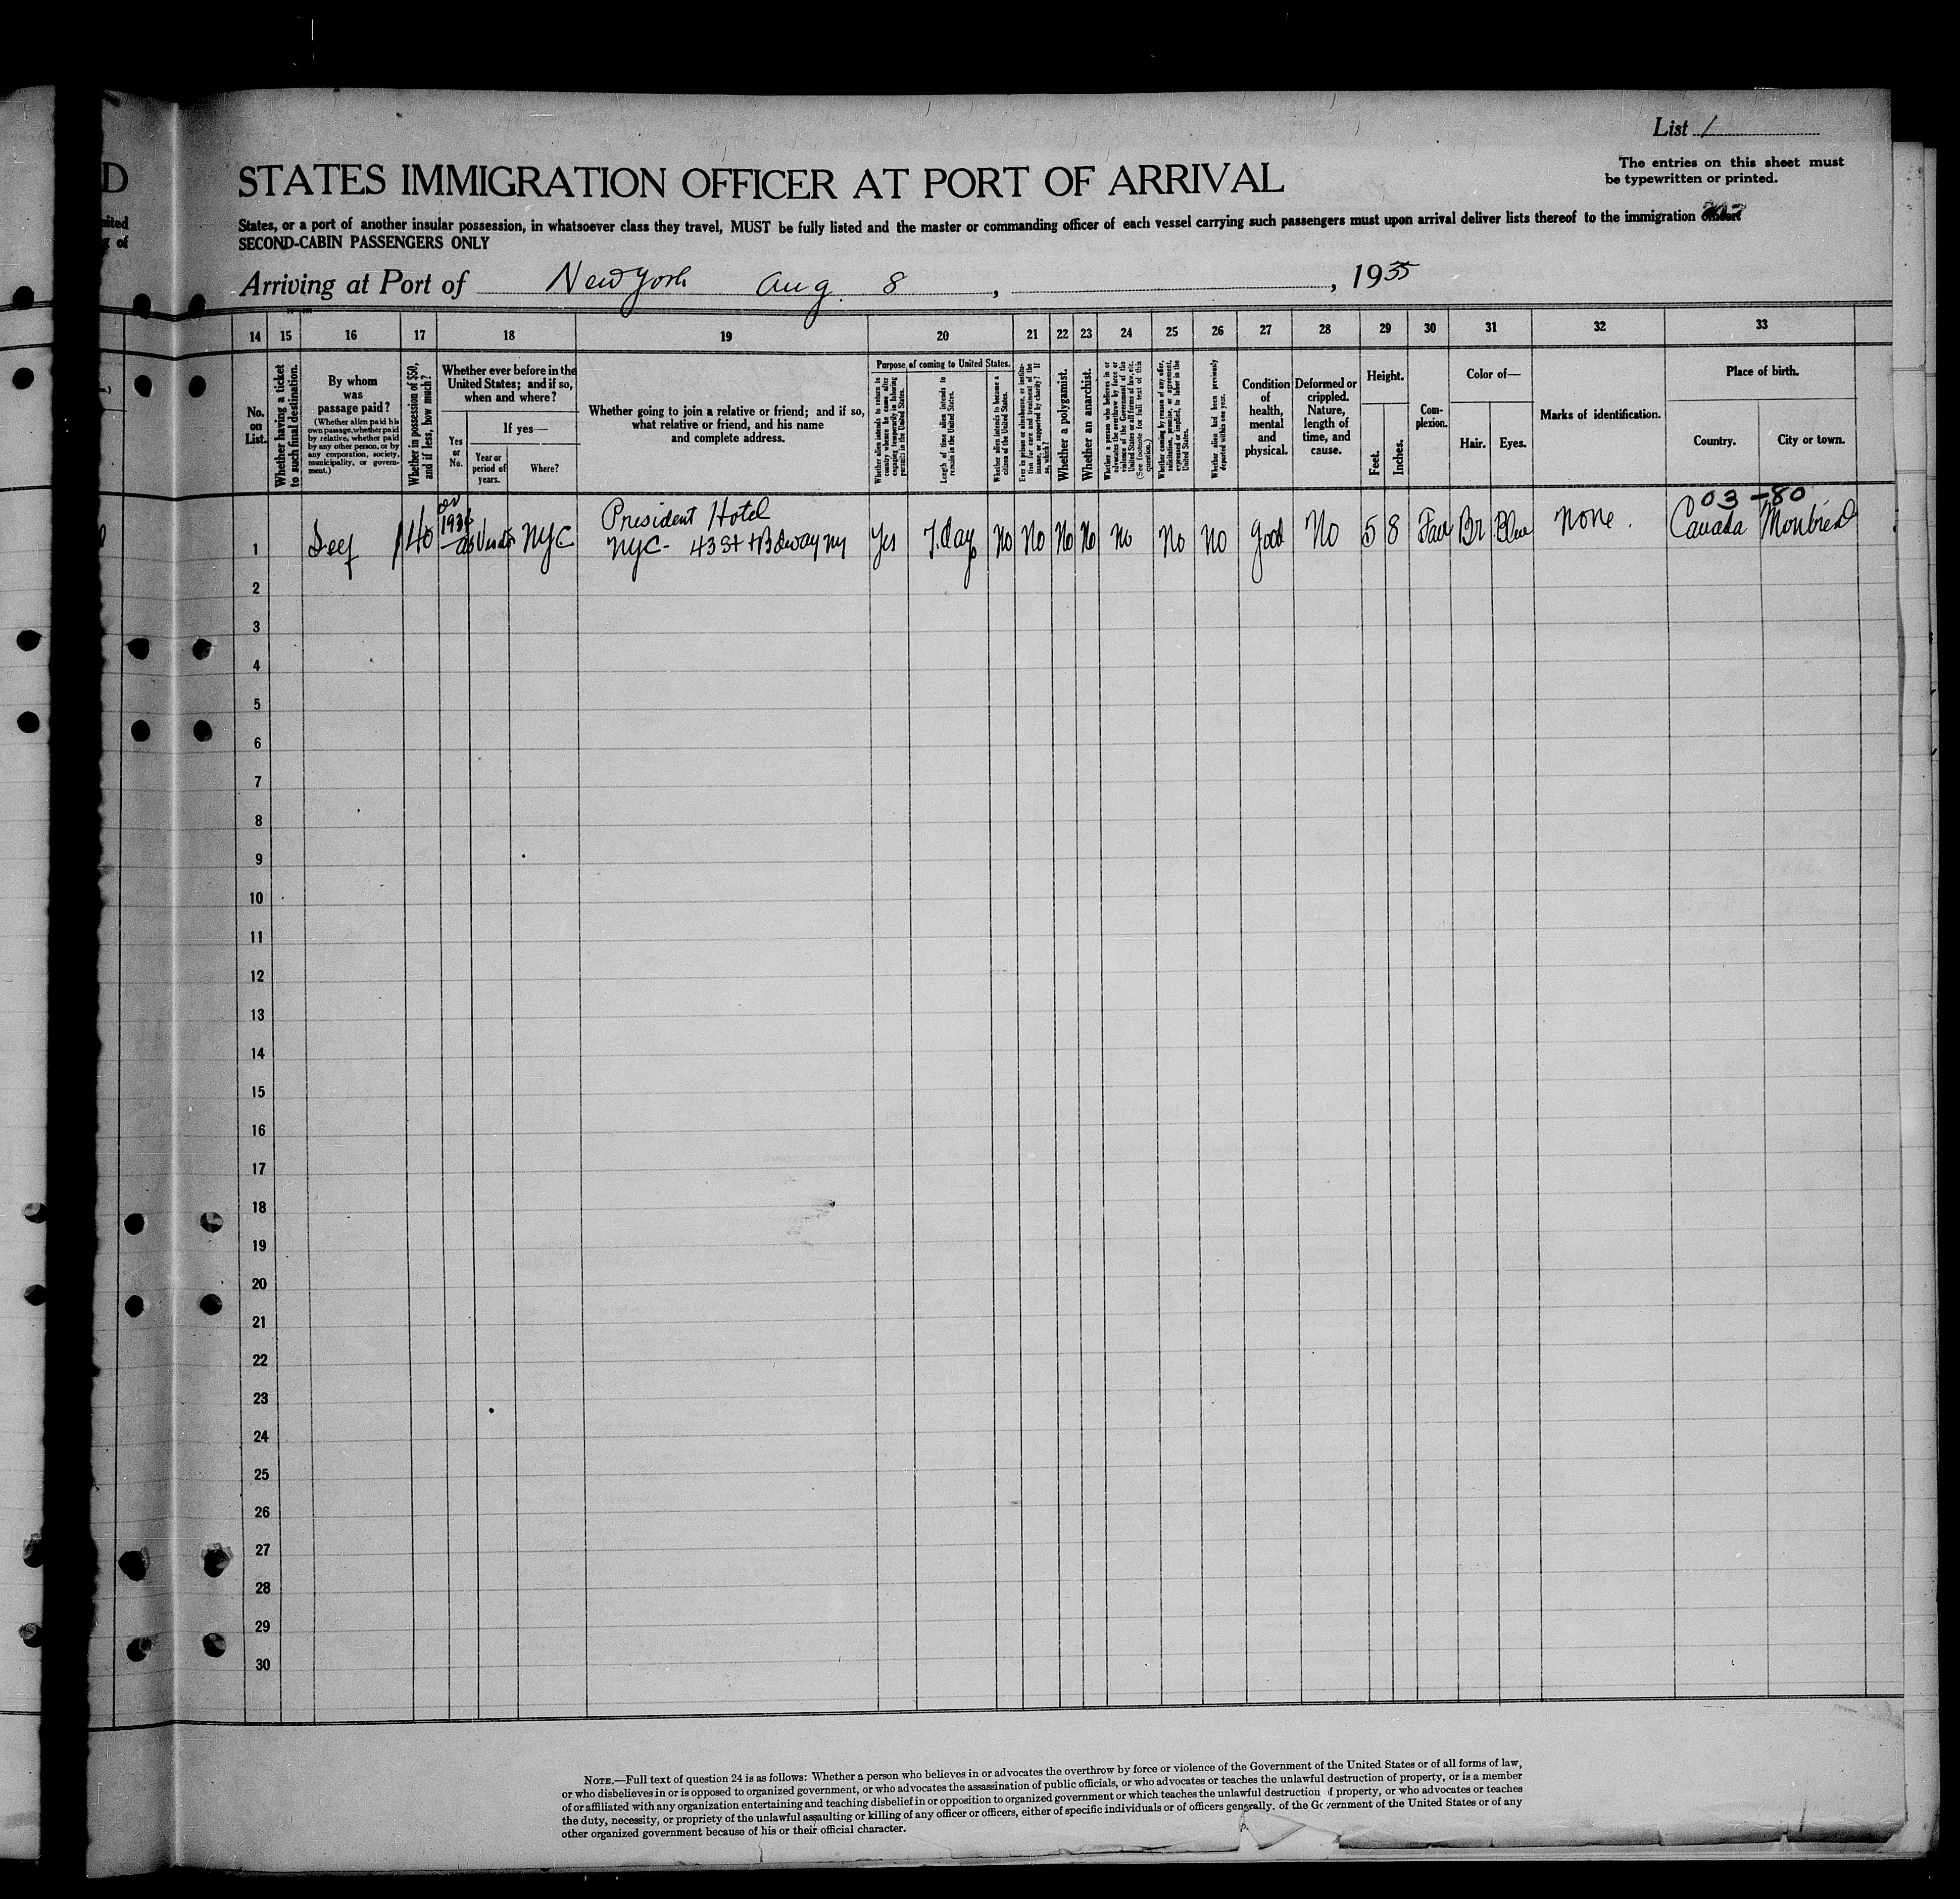 D
nited
g of
List 1
The entries on this sheet must
be typewritten or printed.
STATES IMMIGRATION OFFICER AT PORT OF ARRIVAL
States, or a port of another insular possession, in whatsoever class they travel, MUST be fully listed and the master or commanding officer of each vessel carrying such passengers must upon arrival deliver lists thereof to the immigration
SECOND-CABIN PASSENGERS ONLY
Arriving at Port of New York Aug 8, , 1935
14 15 16 17 18 19 20 21 22 23 24 25 26 27 28 29 30 31 32 33
No. on List.
Whether having a ticket to such final destination.
By whom was passage paid?
(Whether alien paid his own passage, whether paid by relative, whether paid by any other person, or by any corporation, society, municipality, or government.)
Whether in possession of $50, and if less, how much?
Whether ever before in the United States; and if so, when and where?
Yes or No.
If yes—
Year or period of years.
Where?
Whether going to join a relative or friend; and if so, what relative or friend, and his name and complete address.
Purpose of coming to United States.
Whether alien intends to return to country whence he came after engaging temporarily in laboring pursuits in the United States.
Length of time alien intends to remain in the United States.
Whether alien intends to become a citizen of the United States.
Ever in prison or almshouse, or institution for care and treatment of the insane, or supported by charity? If so, which?
Whether a polygamist.
Whether an anarchist.
Whether a person who believes in or advocates the overthrow by force or violence of the Government of the United States or all forms of law, etc. (See footnote for full text of this question.)
Whether coming by reason of any offer, solicitation, promise, or agreement, expressed or implied, to labor in the United States.
Whether alien had been previously deported within one year.
Condition of health, mental and physical.
Deformed or crippled. Nature, length of time, and cause.
Height.
Feet.
Inches.
Complexion.
Color of—
Hair.
Eyes.
Marks of identification.
Place of birth.
Country.
City or town.
03-80
President Hotel
1 Self 40 NYC NYC- 43 St + Bdway NY Yes 7 days No No No No No No No Good No 5 8 Fair Br Blue None. Canada Montreal
2
3
4
5
6
7
8
9
10
11
12
13
14
15
16
17
18
19
20
21
22
23
24
25
26
27
28
29
30
NOTE.—Full text of question 24 is as follows: Whether a person who believes in or advocates the overthrow by force or violence of the Government of the United States or of all forms of law,
or who disbelieves in or is opposed to organized government, or who advocates the assassination of public officials, or who advocates or teaches the unlawful destruction of property, or is a member
of or affiliated with any organization entertaining and teaching disbelief in or opposition to organized government or which teaches the unlawful destruction of property, or who advocates or teaches
the duty, necessity, or propriety of the unlawful assaulting or killing of any officer or officers, either of specific individuals or of officers generally, of the Government of the United States or of any
other organized government because of his or their official character.